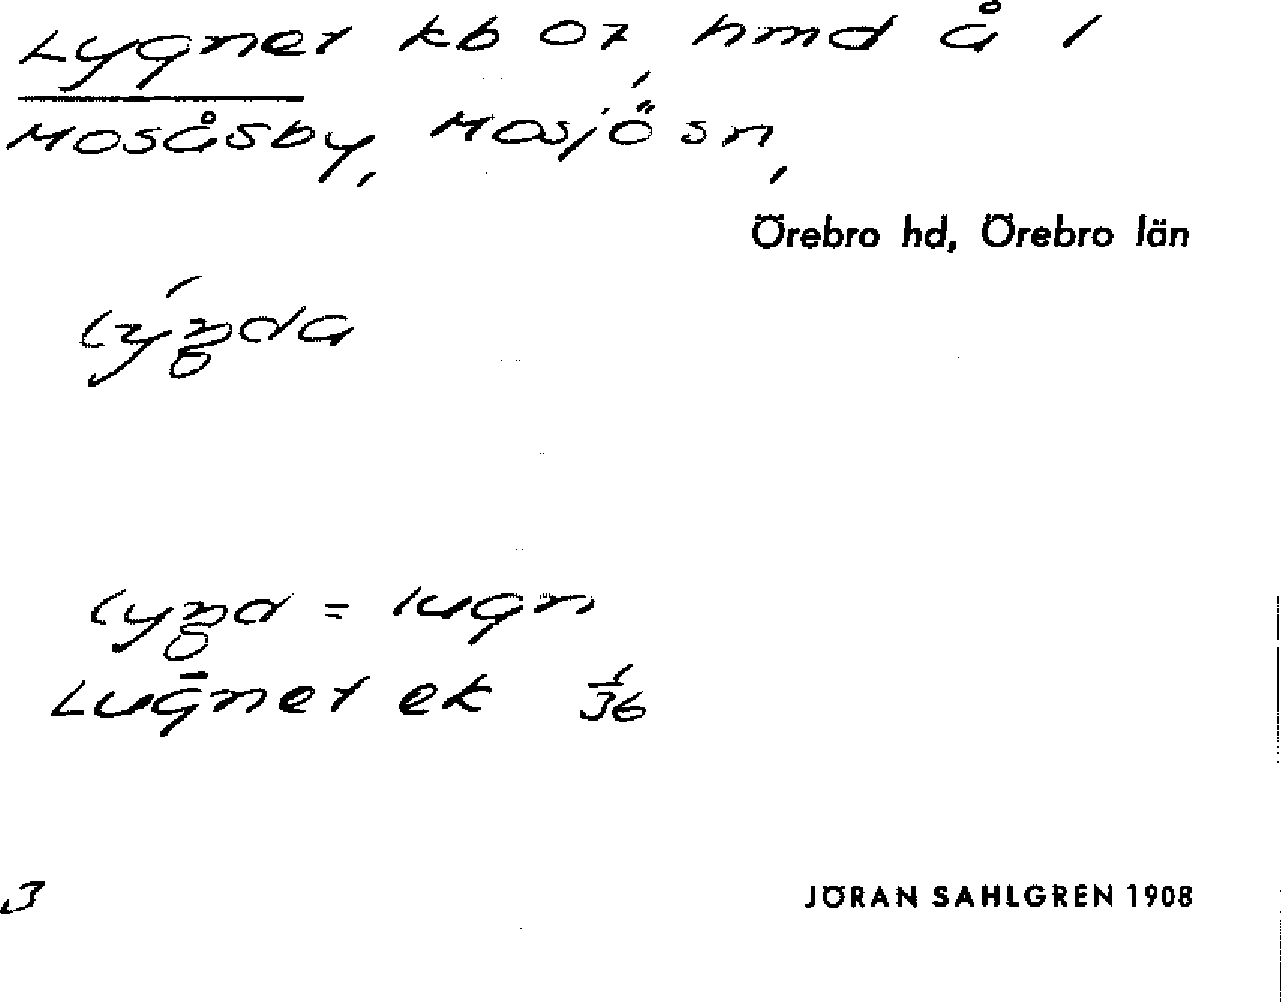 Lygnet kb 07, hmd å 1
Mosåsby, Mosjö sn,
Örebro hd, Örebro län
lugn
Lugnet ek 1/36
3
JÖRAN SAHLGREN 1908